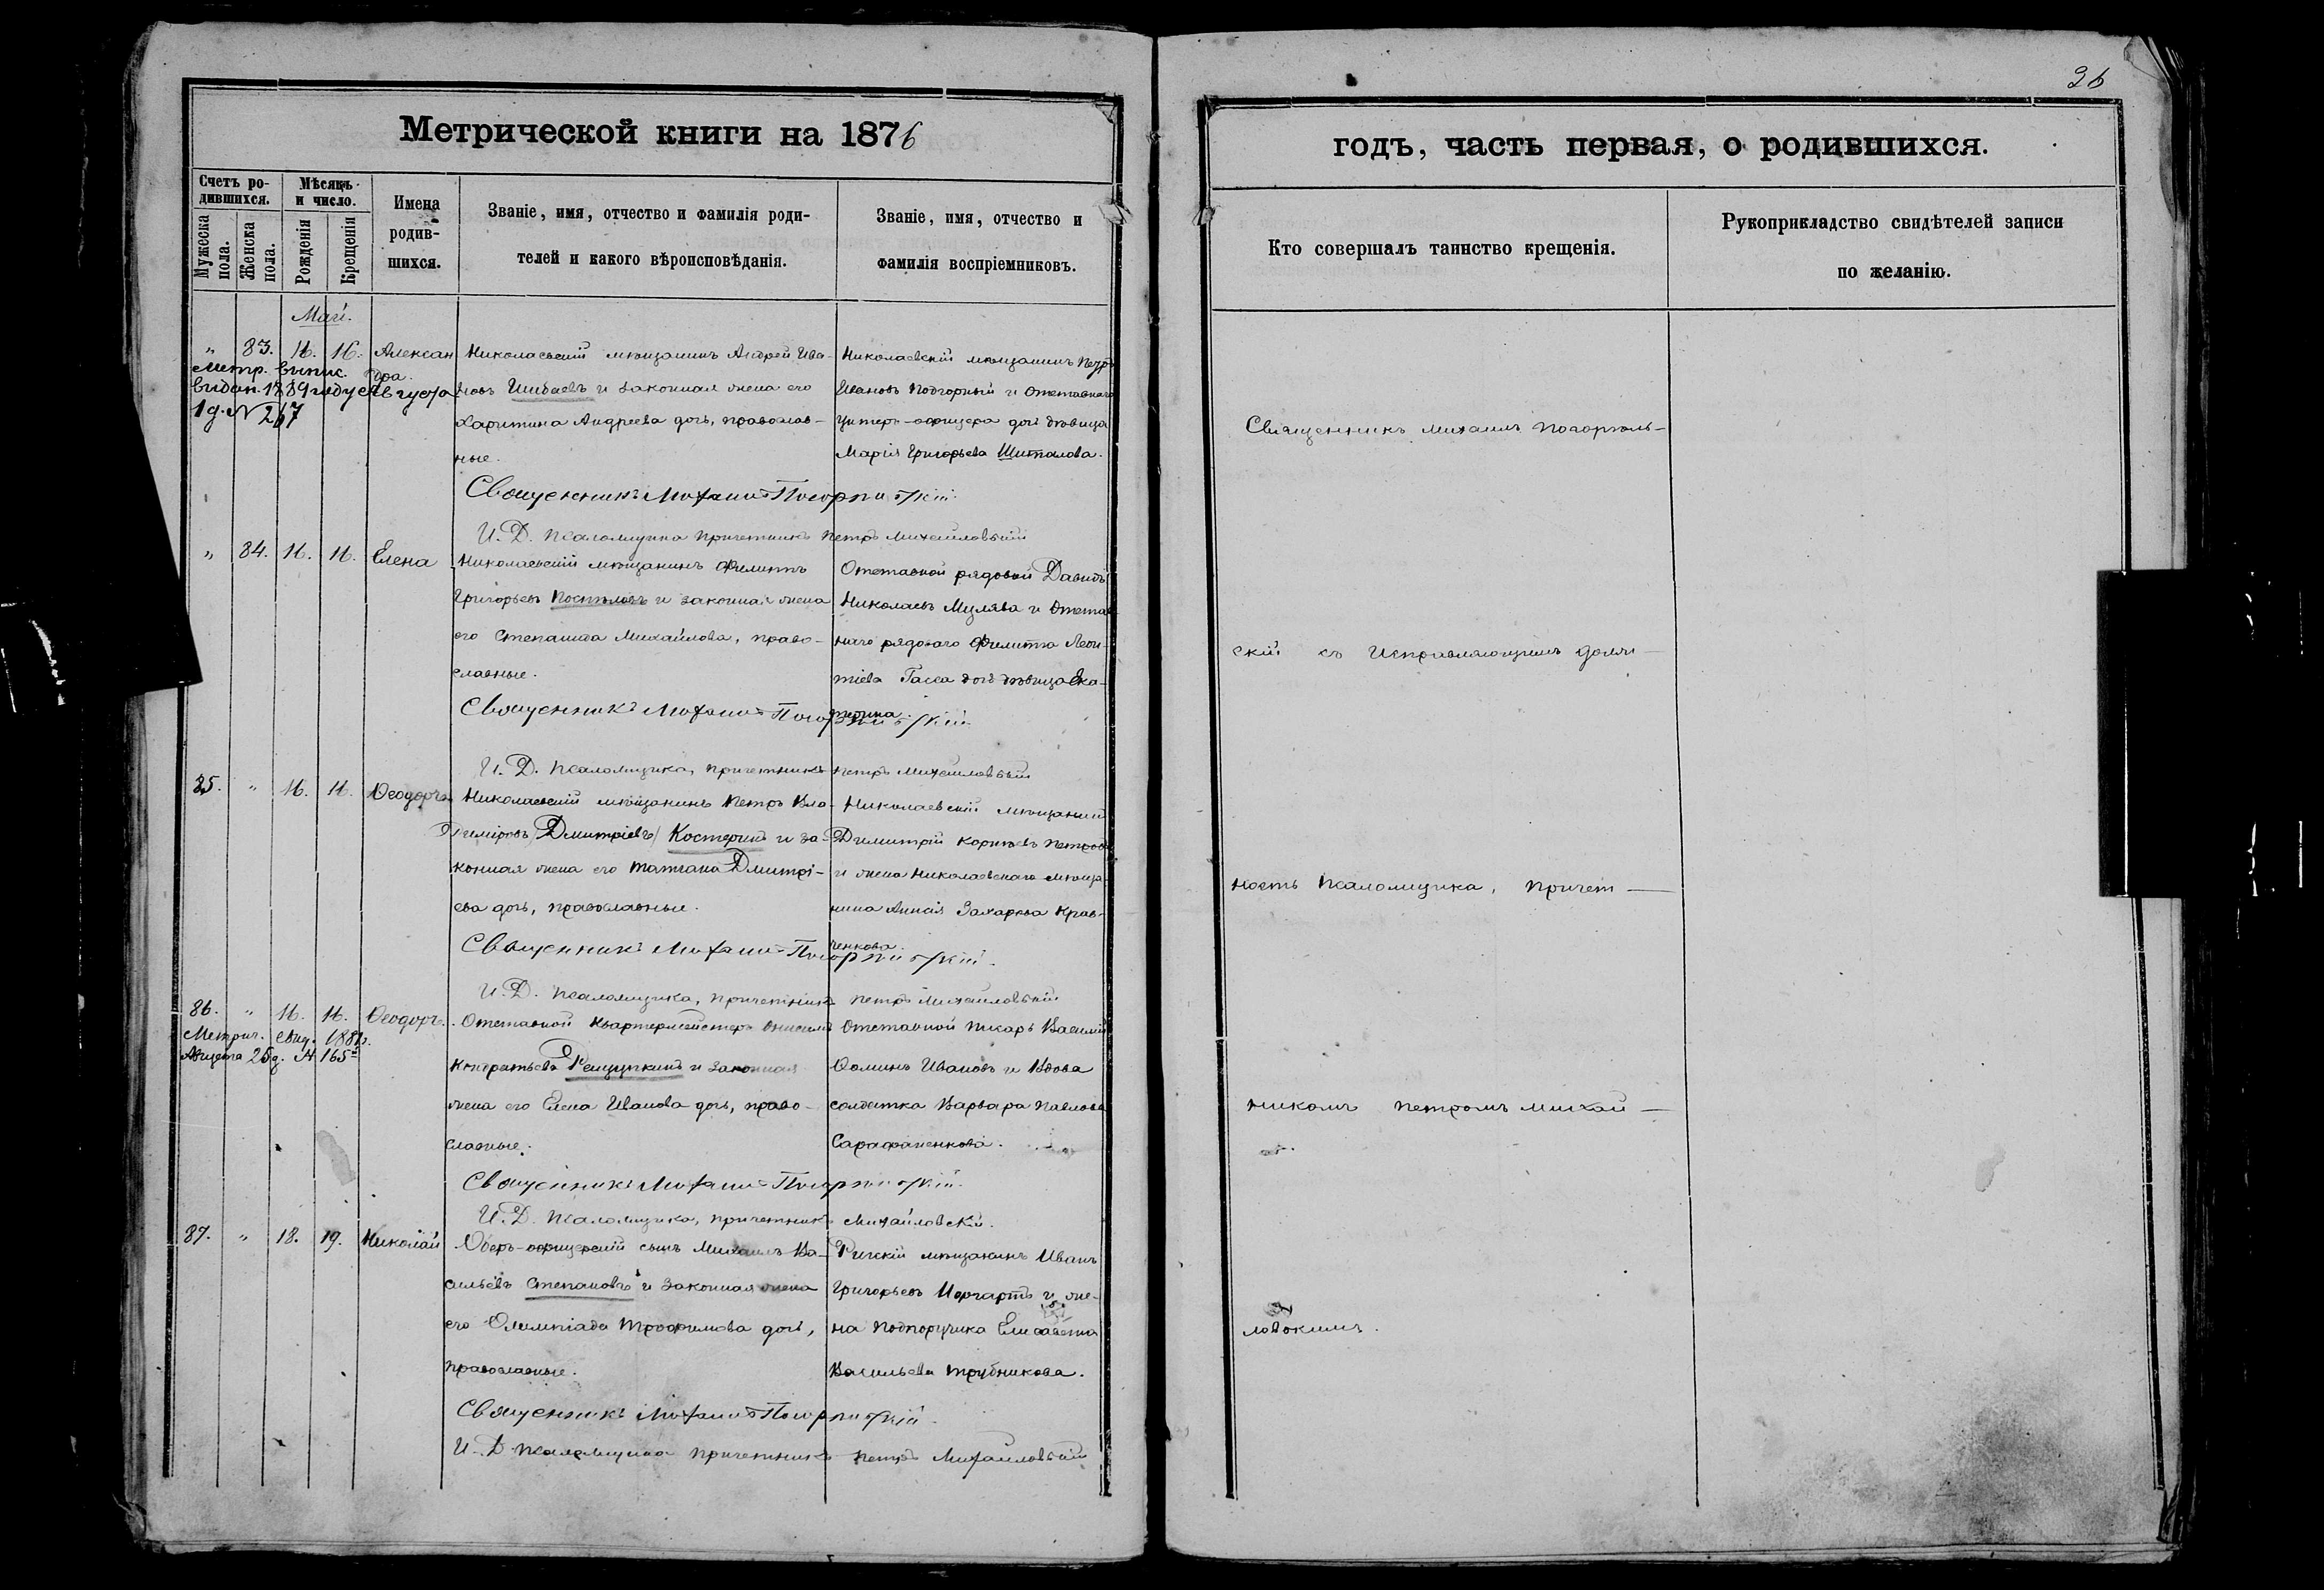 36
Метрической книги на 1876
годъ, часть первая, о родившихся.
Счетъ ро-
дившихся.
Мужеска пола.
Женска пола.
Мѣсяцъ
и число.
Рожденія
Крещенія
Имена
родив-
шихся.
Званіе, имя, отчество и фамилія роди-
телей и какого вѣроисповѣданія.
Званіе, имя, отчество и
фамилія воспріемниковъ.
Кто совершалъ таинство крещенія.
Рукоприкладство свидѣтелей записи
по желанію.
Май.
„ 83. 16. 16. Алексан
дра.
Метр. выпис.
видан. 1889 году Августа
1 д. N 267
Николаевскій мѣщанинъ Андрей Ива-
новъ Шибаевъ и законная жена его
Харитина Андреева дочь, православ-
ные.
Николаевскій мѣщанинъ Петръ
Ивановъ Подгорный и отставнаго
Унтеръ-офицера дочь дѣвица
Марія Григорьева Шиталова.
Священникъ Михаилъ Погорѣльскій
И. Д. Псаломщика причетникъ Петръ Михайловскій
„ 84. 16. 16. Елена
Николаевскій мѣщанинъ Филиппъ
Григорьевъ Поспѣловъ и законная жена
его Степанида Михайлова, право-
славные.
Отставной рядовой Давидъ
Николаевъ Мулява и отстав
наго рядоваго Филиппа Леон-
тіева Гасса дочь дѣвица Ека-
терина.
Священникъ Михаилъ Погорѣльскій
И. Д. Псаломщика, причетникъ Петръ Михайловскій
85. „ 16. 16. Ѳеодоръ
Николаевскій мѣщанинъ Петръ Вла-
диміровъ Дмитріевъ Костерин и за-
конная жена его Татіана Дмитрі-
ева дочь, православные.
Николаевскій мѣщанинъ
Димитрій Корнѣевъ Петровъ
и жена Николаевскаго мѣща-
нина Анисія Захарова Крав-
ченкова.
Священникъ Михаилъ Погорѣльскій
И. Д. Псаломщика, причетникъ Петръ Михайловскій
86. „ 16. 16. Ѳеодоръ.
Метрич. свид. 188
Августа 25 д. N 165
Отставной квартермейстеръ Онисимъ
Кондратьевъ Рещупкинъ и законная
жена его Елена Иванова дочь, право-
славные.
Отставной писарь Василій
Ѳоминъ Ивановъ и Вдова
солдатка Варвара Павлова
Сарафаненкова.
Священникъ Михаилъ Погорѣльскій
И. Д. Псаломщика, причетникъ Михайловскій.
87. „ 18. 19. Николай
Оберъ-офицерскій сынъ Михаилъ Ва-
сильевъ Степановъ и законная жена
его Олимпіада Трофимова дочь,
православные.
Рижскій мѣщанинъ Иванъ
Григорьевъ Иоргартъ и же-
на Подпоручика Елисавета
Васильева Трубникова.
Священникъ Михаилъ Погорѣльскій
И. Д. Псаломщика причетникъ Петръ Михайловскій
Священникъ Михаилъ Погорѣль-
скій съ Исправляющимъ долж-
ность Псаломщика, причет-
никомъ Петромъ Михай-
ловскимъ.